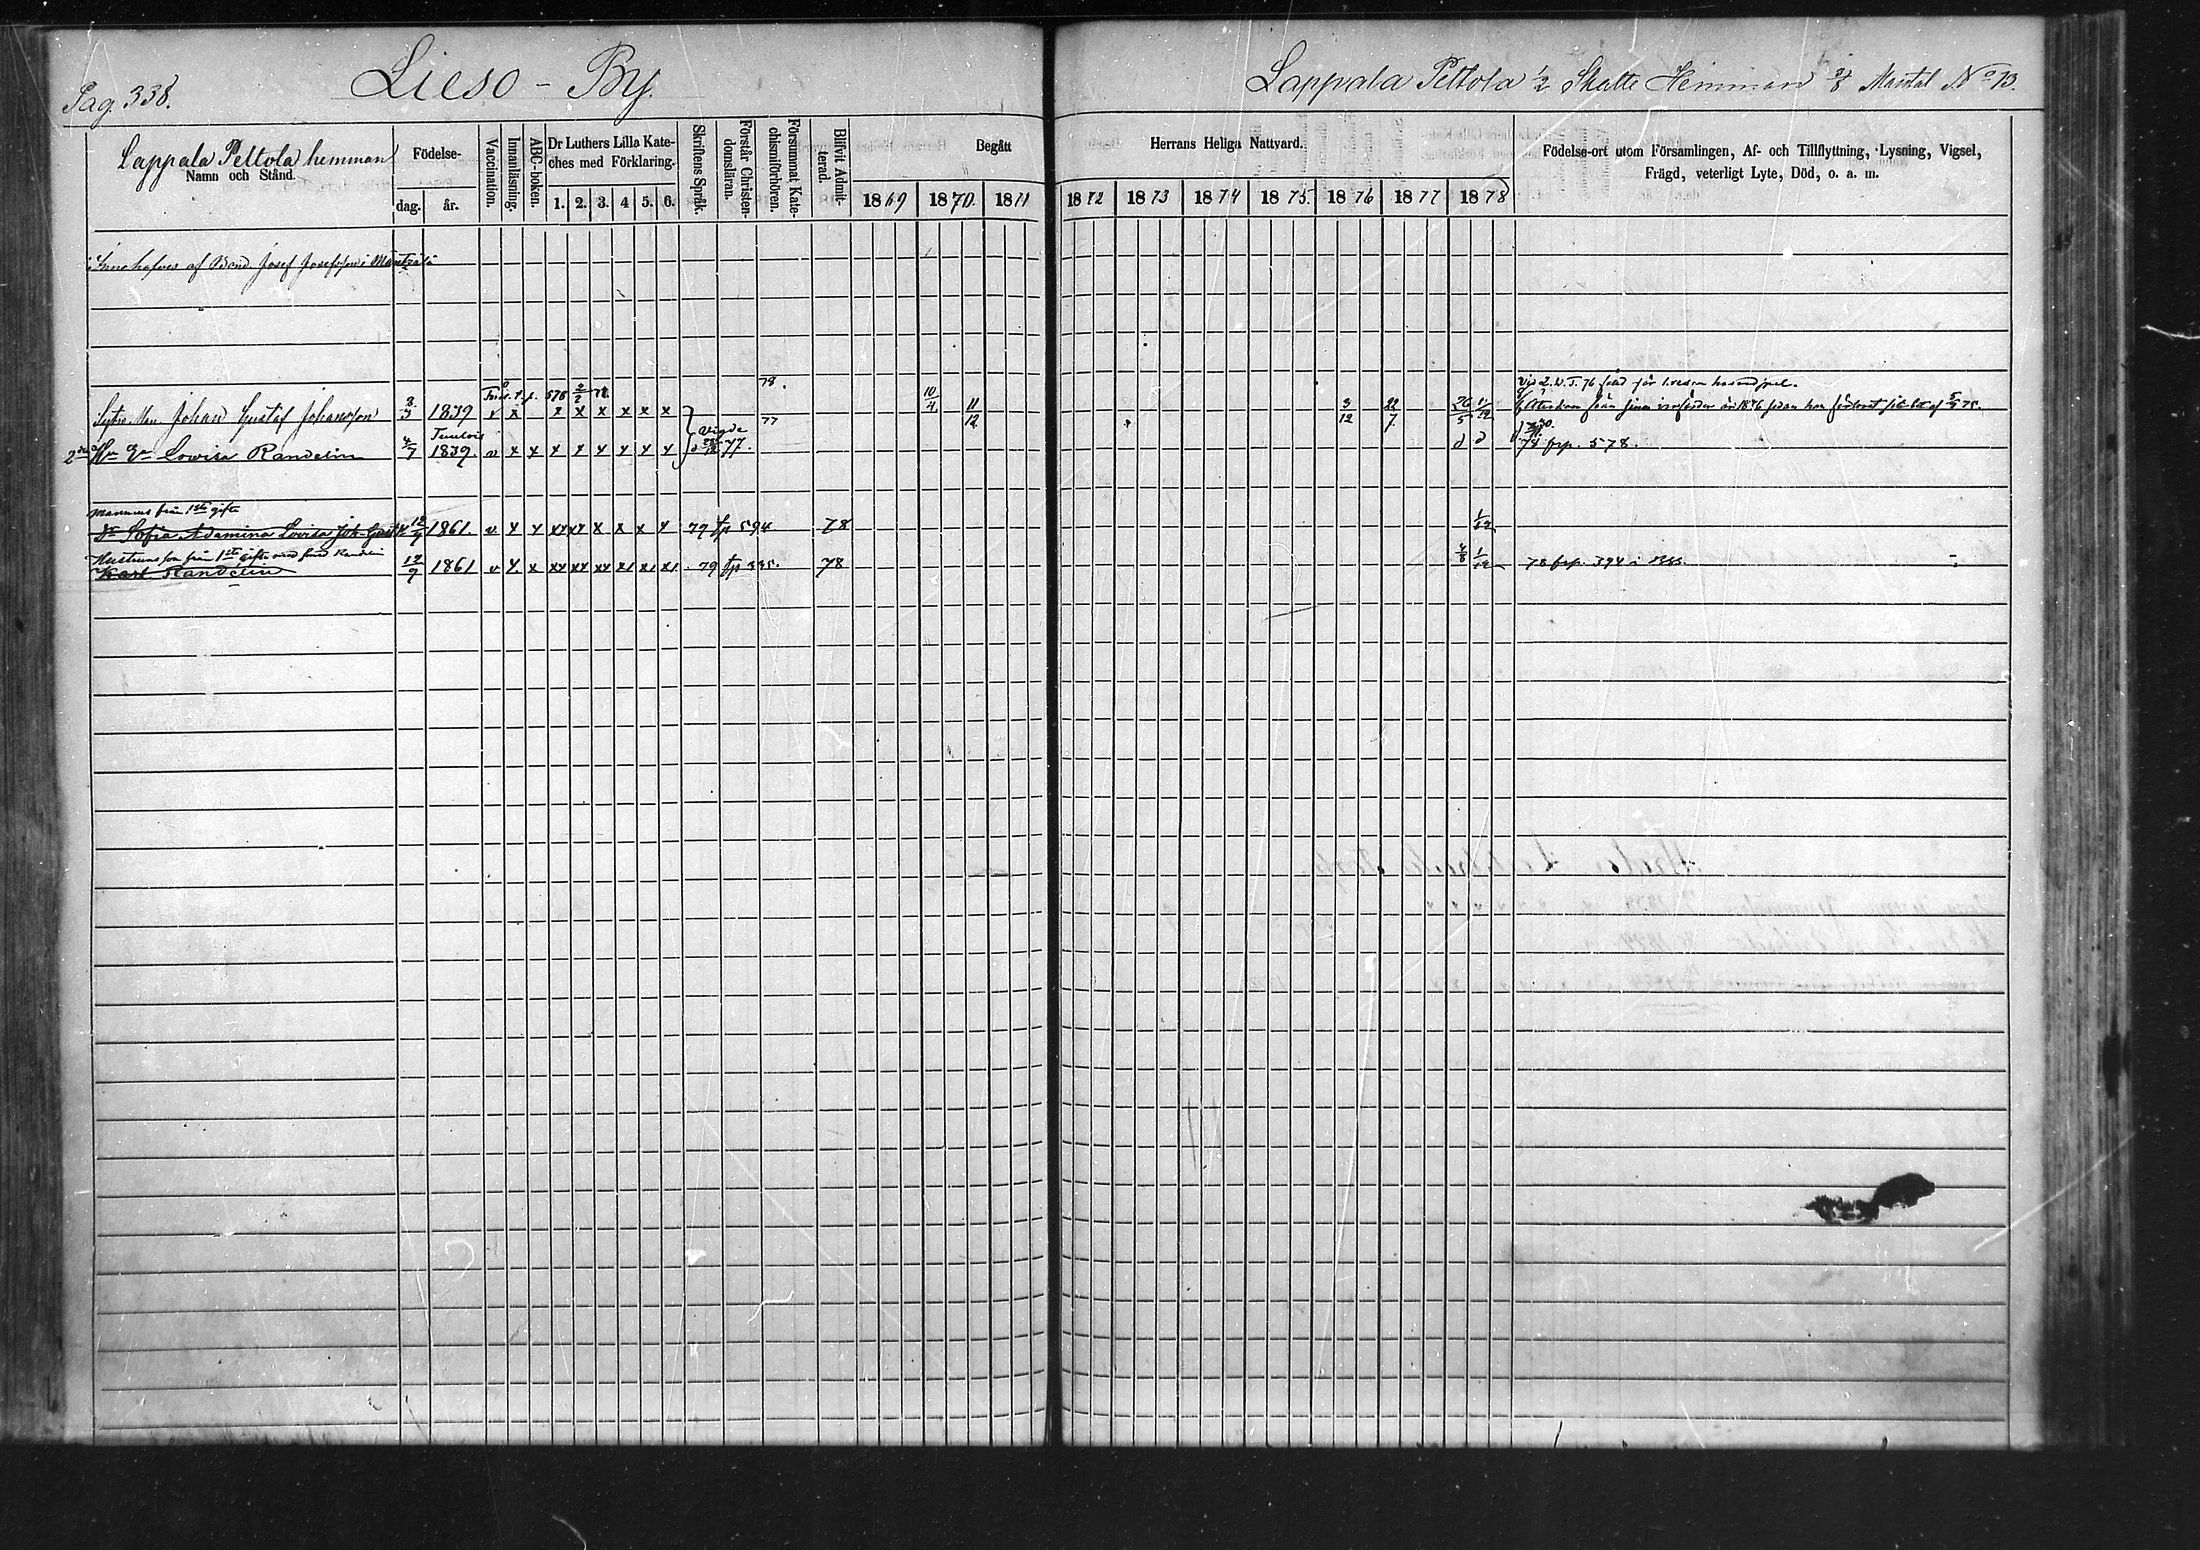 Pag. 338.
Lieso - By.
Lappala Peltola ½ Skatte Hemman Mantal No 13.
Lappala Peltola hemman
Namn och Stånd.
Födelse-
dag. år.
Vaccination.
Innanläsning.
ABC-boken.
Dr Luthers Lilla Kate-
ches med Förklaring.
1. 2. 3. 4 5. 6.
Skriftens Språk.
Förstår Christen-
domsläran.
Försummat Kate-
chismiförhören.
Blifvit Admit-
terad.
Begått
1869 1870. 1871
Herrans Heliga Nattvard.
1872 1873 1874 1875. 1876 1877 1878
Födelse-ort utom Församlingen, Af- och Tillflyttning, Lysning, Vigsel,
Frägd, veterligt Lyte, Död, o. a. m.
Innehafves af Bond. Josef Josefsson i
78.
578 2/2 78.
Johan Gustaf Johansson 1839 v x x x x x x x 77 10/4 11/12 3/12 22/7 26/5
Vigde
2dra Hu Lovisa Randelin 4/7 1839. v x x x x x x x x 77. 78 frp. 578.
Mannens från 1sta gifte
Dr Sofia Adamina Lovisa Joh. 12/9 1861. v x x xx xx x x x x 77 frp 594 78 1/12
Hustruns son från 1sta gifte med Randelin
Karl Randelin 12/9 1861 v x x 79 frp 335. 78 1/12 78 frp. 394 i